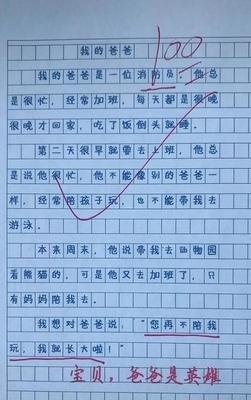 我的爸爸
100
我的爸爸是一位消防员，他总
是很忙，经常加班，每天都是很晚
很晚才回家，吃了饭倒头就睡。
第二天很早就要去上班，他总
是说他很忙，他不能像别的爸爸一
样，经常陪孩子玩，也不能带我去
游泳。
本来周末，他说带我去动物园
看熊猫的，可是他又去加班了，只
有妈妈陪我去。
我想对爸爸说，“您再不陪我
玩，我就长大啦！”
宝贝，爸爸是英雄